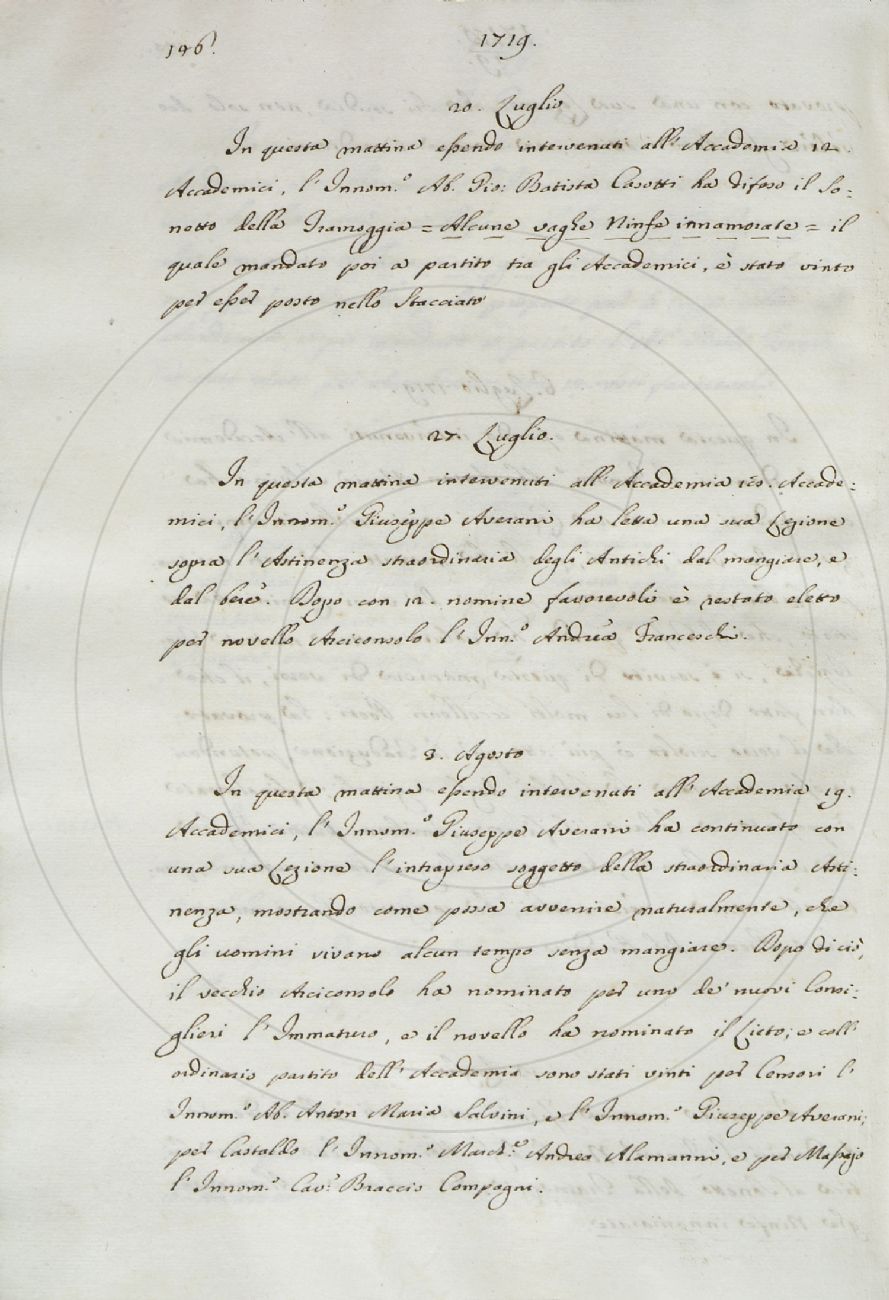 146. 1719.
20. Luglio
In questa mattina essendo intervenuti all' Accademia 12.
Accademici, l' Innom.º Ab. Gio: Batista Casotti ha difeso il So=
netto della Tramoggia = Alcune vaghe Ninfe innamorate = il
quale mandato poi a partito tra gli Accademici, è stato vinto
per esser posto nello Stacciato
27. Luglio.
In questa mattina intervenuti all' Accademia Accade=
mici, l' Innom.º Giuseppe Averani ha letta una sua Lezione
sopra l' Astinenza straordinaria degli Antichi dal mangiare, e
dal bere. Dopo con 12. nomine favorevoli è restato eletto
per novello Arciconsolo l' Inn.º Andrea Franceschi.
3. Agosto
In questa mattina essendo intervenuti all' Accademia 19.
Accademici, l' Innom.º Giuseppe Averani ha continuato con
una sua Lezione l' intrapreso soggetto della straordinaria Asti=
nenza, mostrando come possa avvenire naturalmente, che
gli uomini vivano alcun tempo senza mangiare. Dopo di ciò,
il vecchio Arciconsolo ha nominato per uno de' nuovi Consi=
glieri l' Immaturo, e il novello ha nominato il Lieto; e coll'
ordinario partito dell' Accademia sono stati vinti per Censori l'
Innom.º Ab. Anton Maria Salvini, e l' Innom.º Giuseppe Averani;
per Castaldo l' Innom.º March.º Andrea Alamanni, e per Massajo
l' Innom.º Cav.º Braccio Compagni.